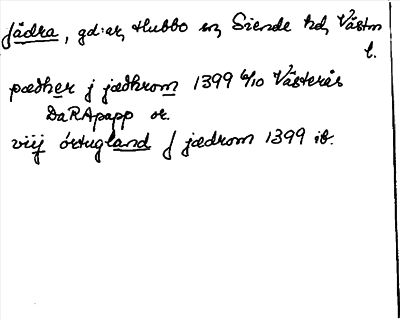 Jädra, gd:ar, Hubbo sn, Siende hd, Västm
l.
pædher j jædhrom 1399 6/10 Västerås
DaRApapp or.
viij örtugland J jædrom 1399 ib.